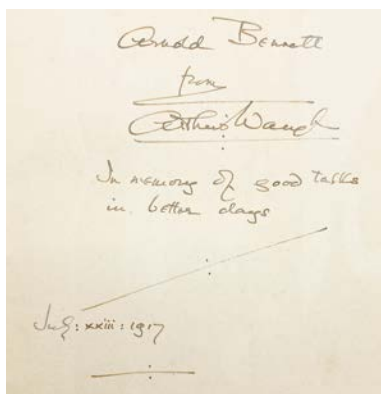 Arnold Bennett
from
Arthur Waugh
In memory of good talks
in better days
July: xxiii: 1917